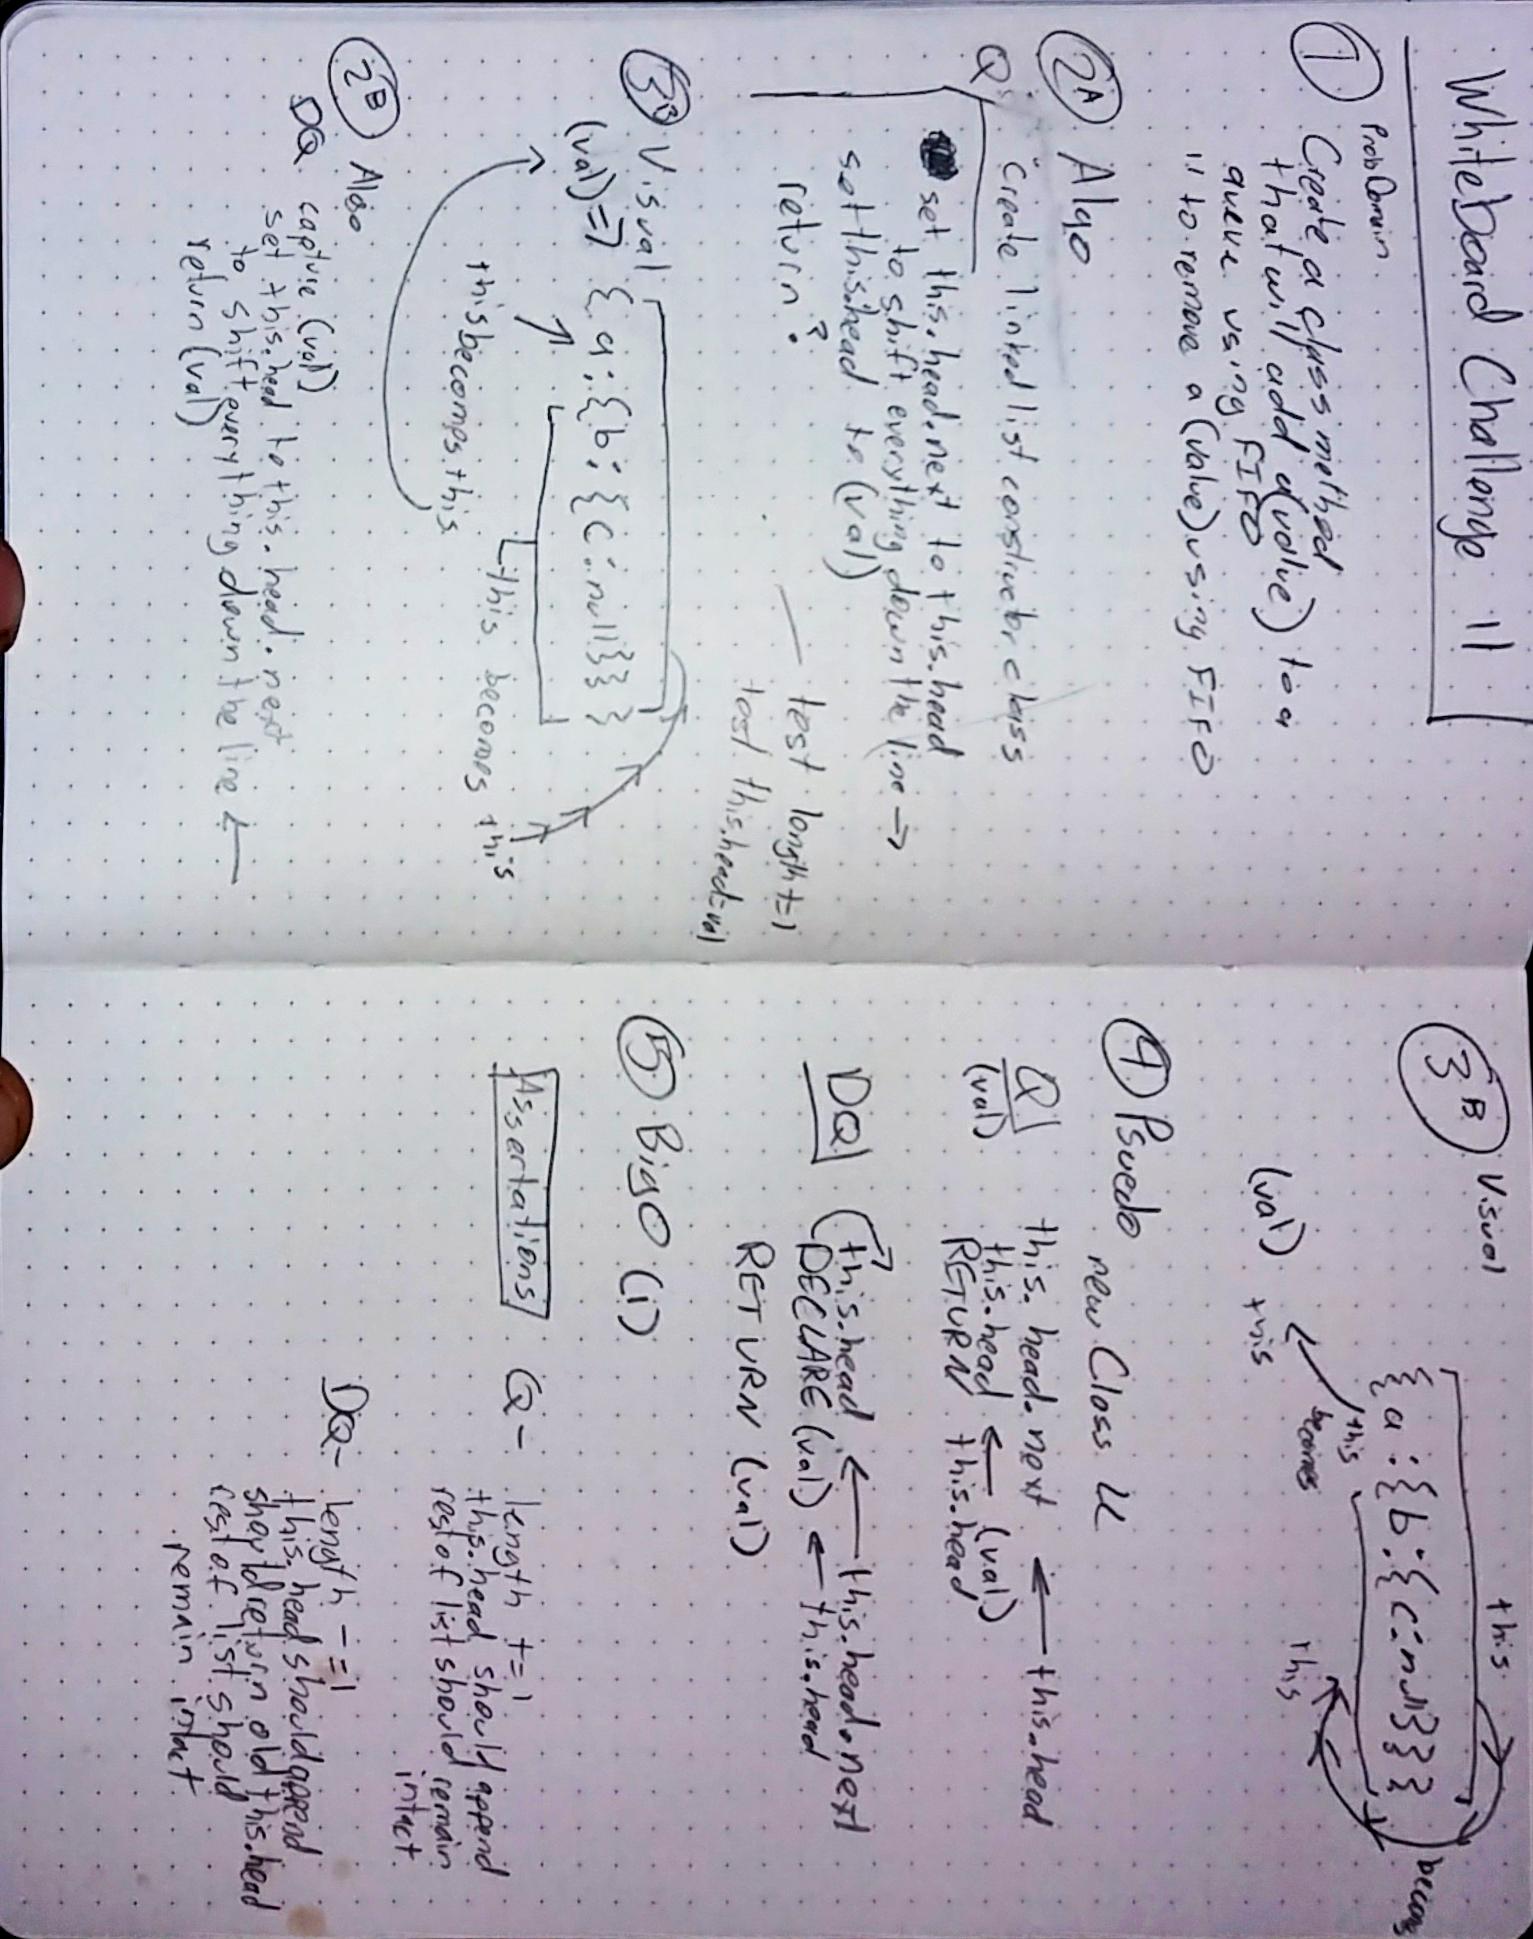 Whiteboard Challenge 11
① Prob Domain
Create a class method
that will add a (value) to a
queue using FIFO
11 to remove a (value) using FIFO
2A Algo
Q create linked list constructor class
set this.head.next to this.head
to shift everything down the line →
set this.head to (val)
return?
test length +=1
test this.head=val
Visual
(val) => { a: {b: {c: null}} }
this becomes this
this becomes this
2B Algo
DQ capture (val)
set this.head to this.head.next
to shift everything down the line ←
return (val)
3B Visual
this
{a: {b: {c: null}}}
this
becomes
(val) this
this
④ Psuedo new Class LL
Q
(val)
this.head.next ← this.head
this.head ← (val)
RETURN this.head
DQ
this.head ← this.head.next
DECLARE (val) ← this.head
RETURN (val)
⑤ Big O (1)
Assertations
Q - length +=1
this.head should append
rest of list should remain
intact
DQ - length -=1
this.head should append
should return old this.head
rest of list should
remain intact